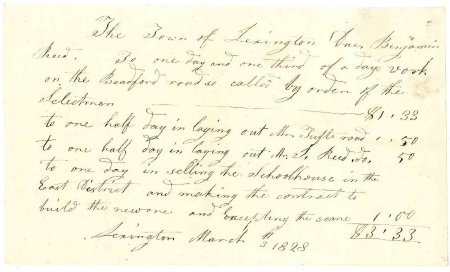 The Town of Lexington Benjamin
Reed. To one day and one third of a day work
on the Bedford road so called by order of the
Selectmen $1.33
to one half day in laying out Mr. Tufts road .50
to one half day in laying out Mr. Reed Do. 50
to one day in selling the Schoolhouse in the
East District and making the contract to
build the new one and Excepting the same 1.00
Lexington March 1828 $3.33